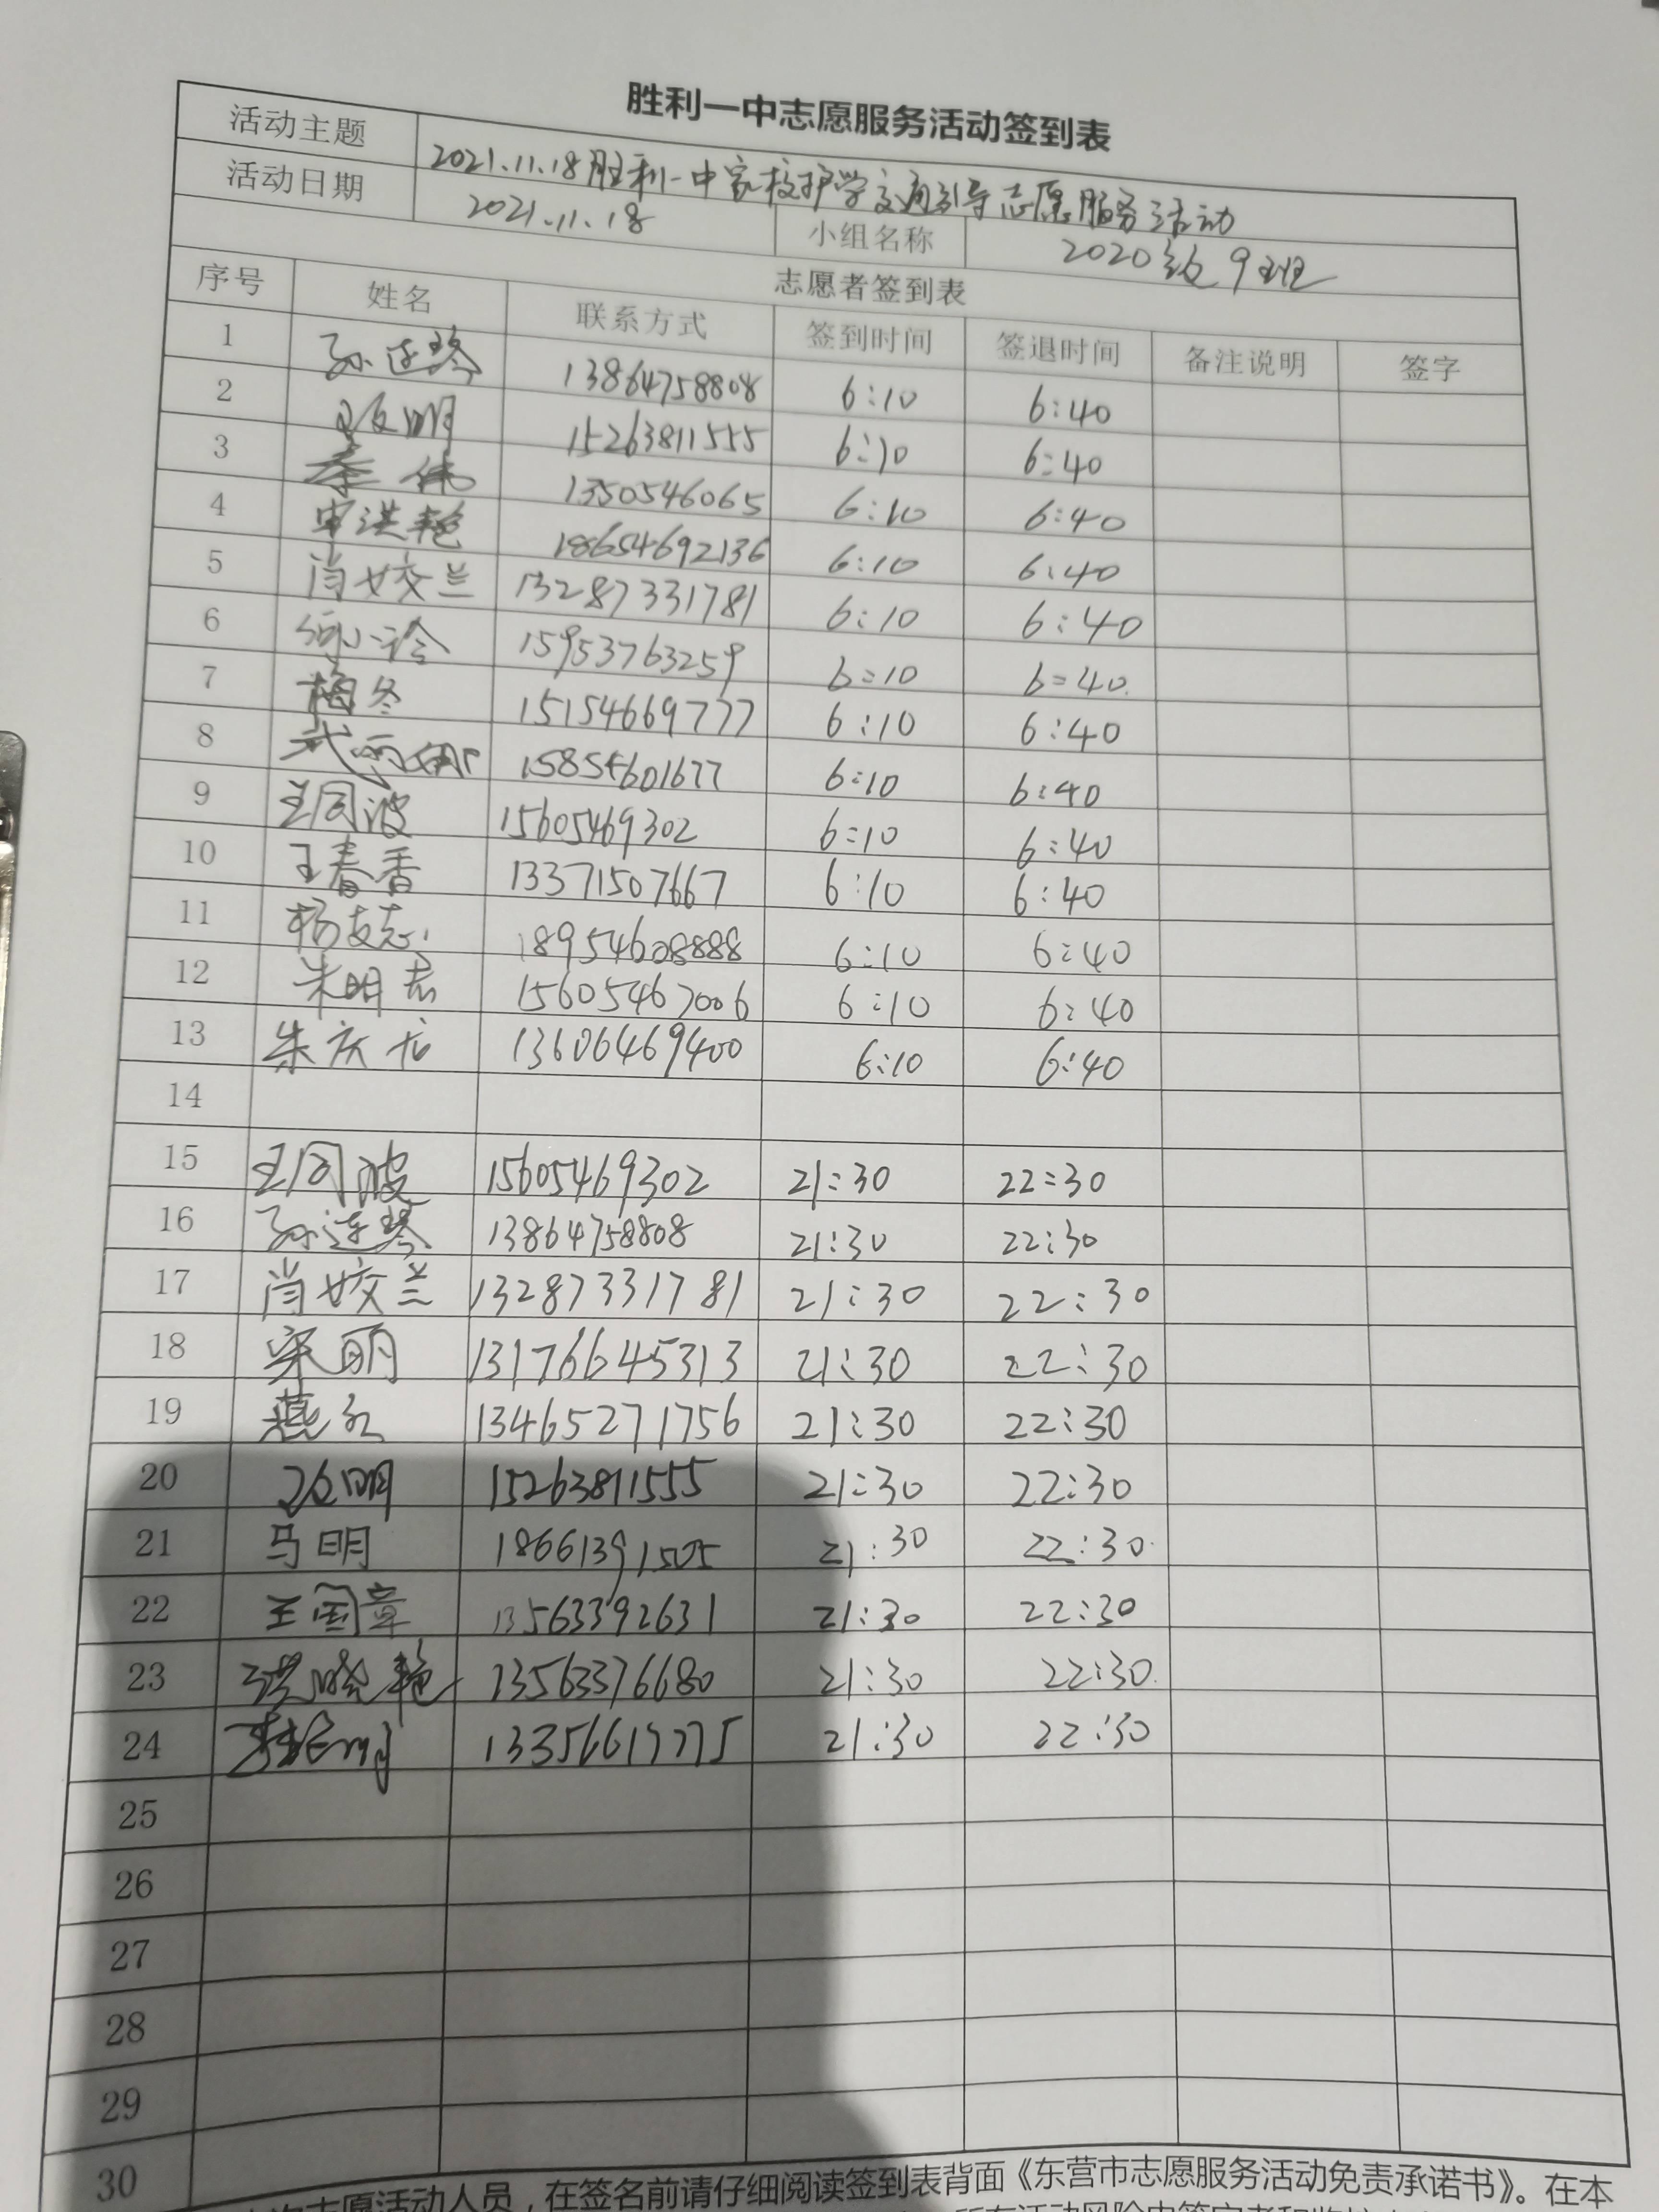 胜利一中志愿服务活动签到表
活动主题 2021.11.18胜利一中家校护学交通引导志愿服务活动
活动日期 2021.11.18 小组名称 2020级9班
志愿者签到表
序号 姓名 联系方式 签到时间 签退时间 备注说明 签字
1 孙连琴 13864758808 6:10 6:40
2 明 15263811555 6:10 6:40
3 秦伟 1350546065 6:10 6:40
4 洪艳 18654692136 6:10 6:40
5 肖姣兰 13287331781 6:10 6:40
6 15953763259 6:10 6:40
7 梅冬 15154669777 6:10 6:40
8 武 15854601677 6:10 6:40
9 王同波 15605469302 6:10 6:40
10 王春香 13371507667 6:10 6:40
11 杨友志 18954608888 6:10 6:40
12 朱明志 15605467006 6:10 6:40
13 朱庆龙 13606469400 6:10 6:40
14
15 王同波 15605469302 21:30 22:30
16 孙连琴 13864758808 21:30 22:30
17 肖姣兰 13287331781 21:30 22:30
18 宋丽 13176645313 21:30 22:30
19 燕红 13465271756 21:30 22:30
20 明 15263811555 21:30 22:30
21 马明 18661391505 21:30 22:30
22 王国章 13563392631 21:30 22:30
23 洪晓艳 13563376680 21:30 22:30
24 13356617775 21:30 22:30
25
26
27
28
29
30
次志愿活动人员，在签名前请仔细阅读签到表背面《东营市志愿服务活动免责承诺书》。在本